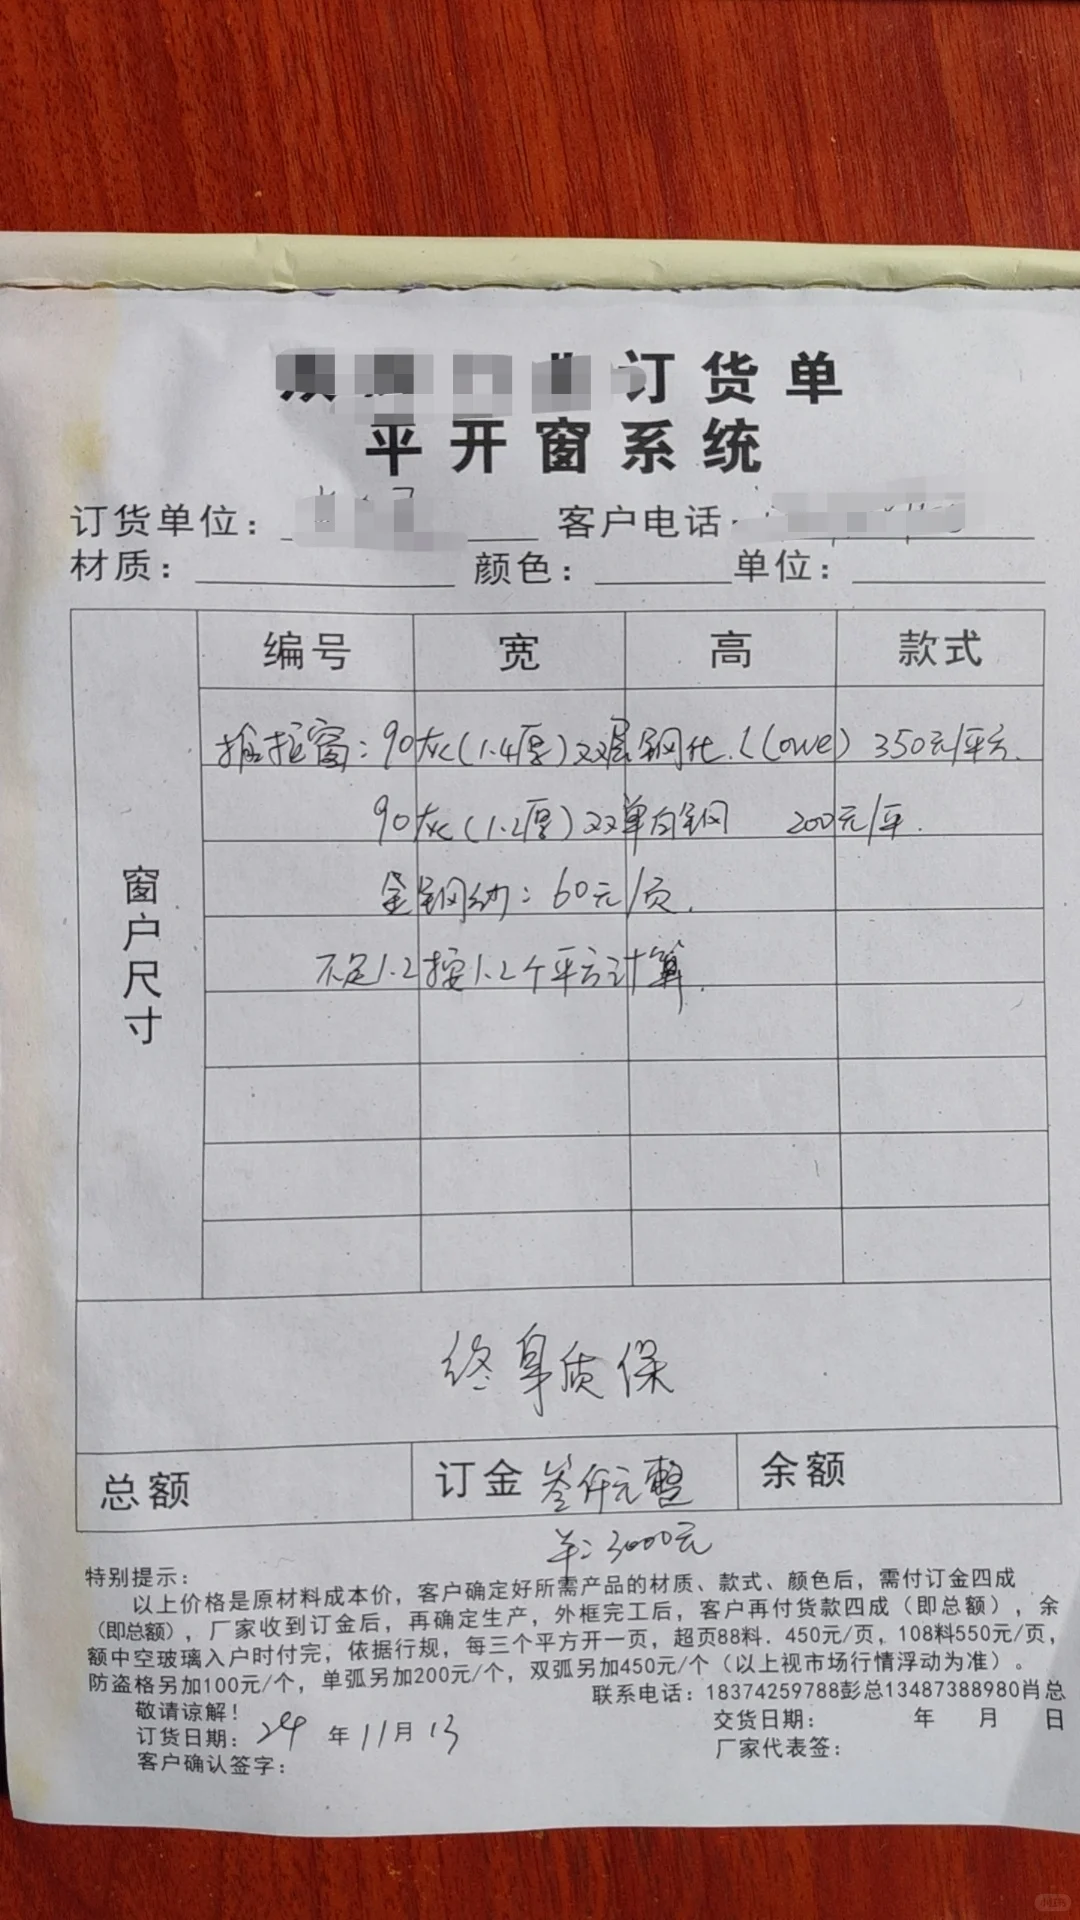 订货单
平开窗系统
订货单位： 客户电话：
材质： 颜色： 单位：
编号 宽 高 款式
窗户尺寸
推拉窗：90灰(1.4厚)双层钢化.(Lowe) 350元/平方.
90灰(1.2厚)双单白钢 200元/平.
金钢纱：60元/页.
不足1.2按1.2个平方计算.
终身质保
总额 订金 叁仟元整 余额
羊：3000元
特别提示：
以上价格是原材料成本价，客户确定好所需产品的材质、款式、颜色后，需付订金四成
（即总额），厂家收到订金后，再确定生产，外框完工后，客户再付货款四成（即总额），余
额中空玻璃入户时付完，依据行规，每三个平方开一页，超页88料．450元/页，108料550元/页，
防盗格另加100元/个，单弧另加200元/个，双弧另加450元/个（以上视市场行情浮动为准）。
敬请谅解！ 联系电话：18374259788彭总13487388980肖总
订货日期：24年11月13 交货日期： 年 月 日
客户确认签字： 厂家代表签：